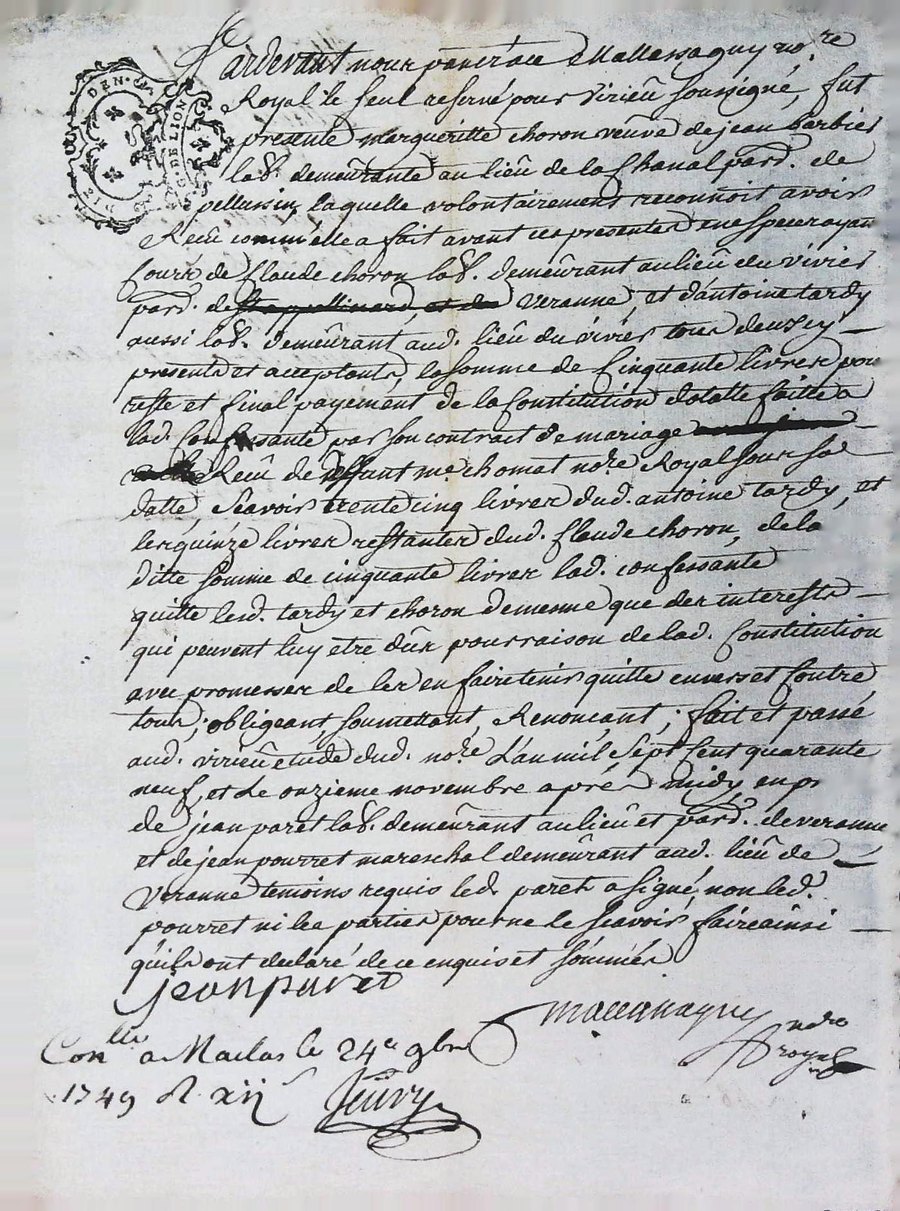 Pardevant nous pancrace Mallassagny no.re
Royal le seul reservé pour Virieû soussigné, fut
presente margueritte choron veûve de jean barbier
lab. demeûrante au lieû de la Chanal pard. de
pellussin, laquelle volontairement reconnoit avoir
Recû comm'elle a fait avant ces presentes en espece ayan
Cours de Claude choron lab. demeûrant au lieû du vivier
pard. de Veranne, et d'antoine tardy
aussi lab. demeûrant aud. lieû du vivier tous deux icy
presents et acceptants, la somme de Cinquante livres pour
reste et final payement de la Constitution dotalle faitte a
lad. Confessante par son contrat de mariage
Recû de deffunt me. chomat no.re Royal sous sa
datte, Scavoir trente cinq livres dud. antoine tardy, et
les quinze livres restantes dud. Claude choron, de la
ditte somme de cinquante livres lad. confessante
quitte lesd. tardy et choron demesme que des interests
qui peuvent luy etre dûs pour raison de lad. Constitution
avec promesses de les en faire tenir quitte envers et Contre
tous; obligeant, soumettant, Renoncant; fait et passé
aud. virieû etude dud. no.re L'an mil Sept Cent quarante
neuf, et Le onzieme novembre aprés midy, en pr
de jean paret lab. demeûrant au lieû et pard. de veranne
et de jean pourret mareschal demeûrant aud. lieû de
Veranne temoins requis led. paret a signé, non led.
pourret ni les parties pour ne le scavoir faire ainsi
qu'ils ont declaré de ce enquis et sommés
jean paret
Mallassagny no.re
royal
Con.llé a Maclas le 24e. 9bre
1749 R. xij s